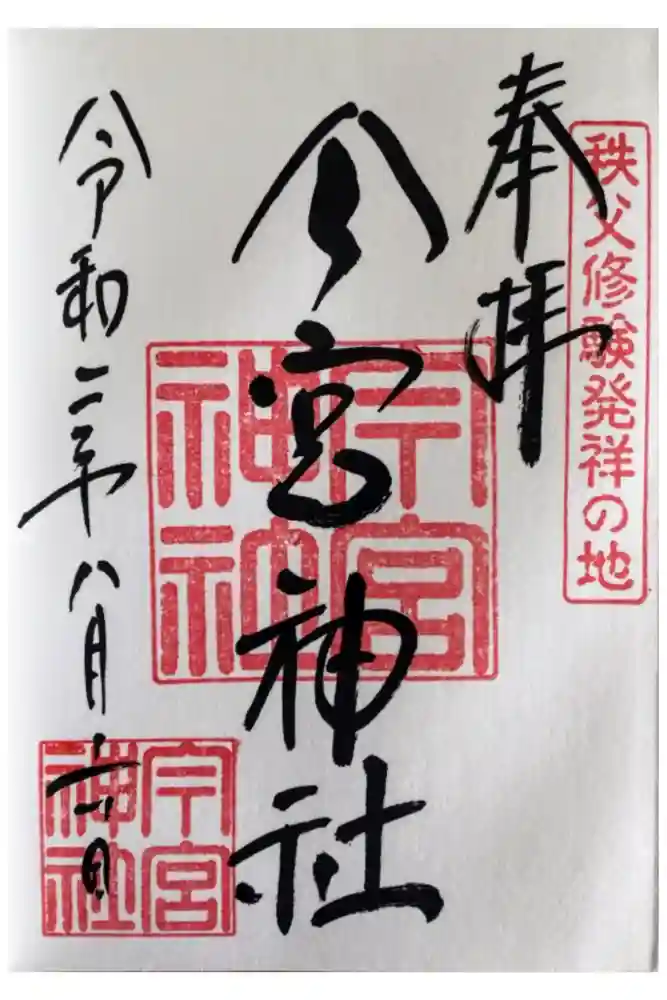 秩父修験発祥の地
奉拝
今宮神社
今宮
神社
令和二年八月六日
今宮
神社